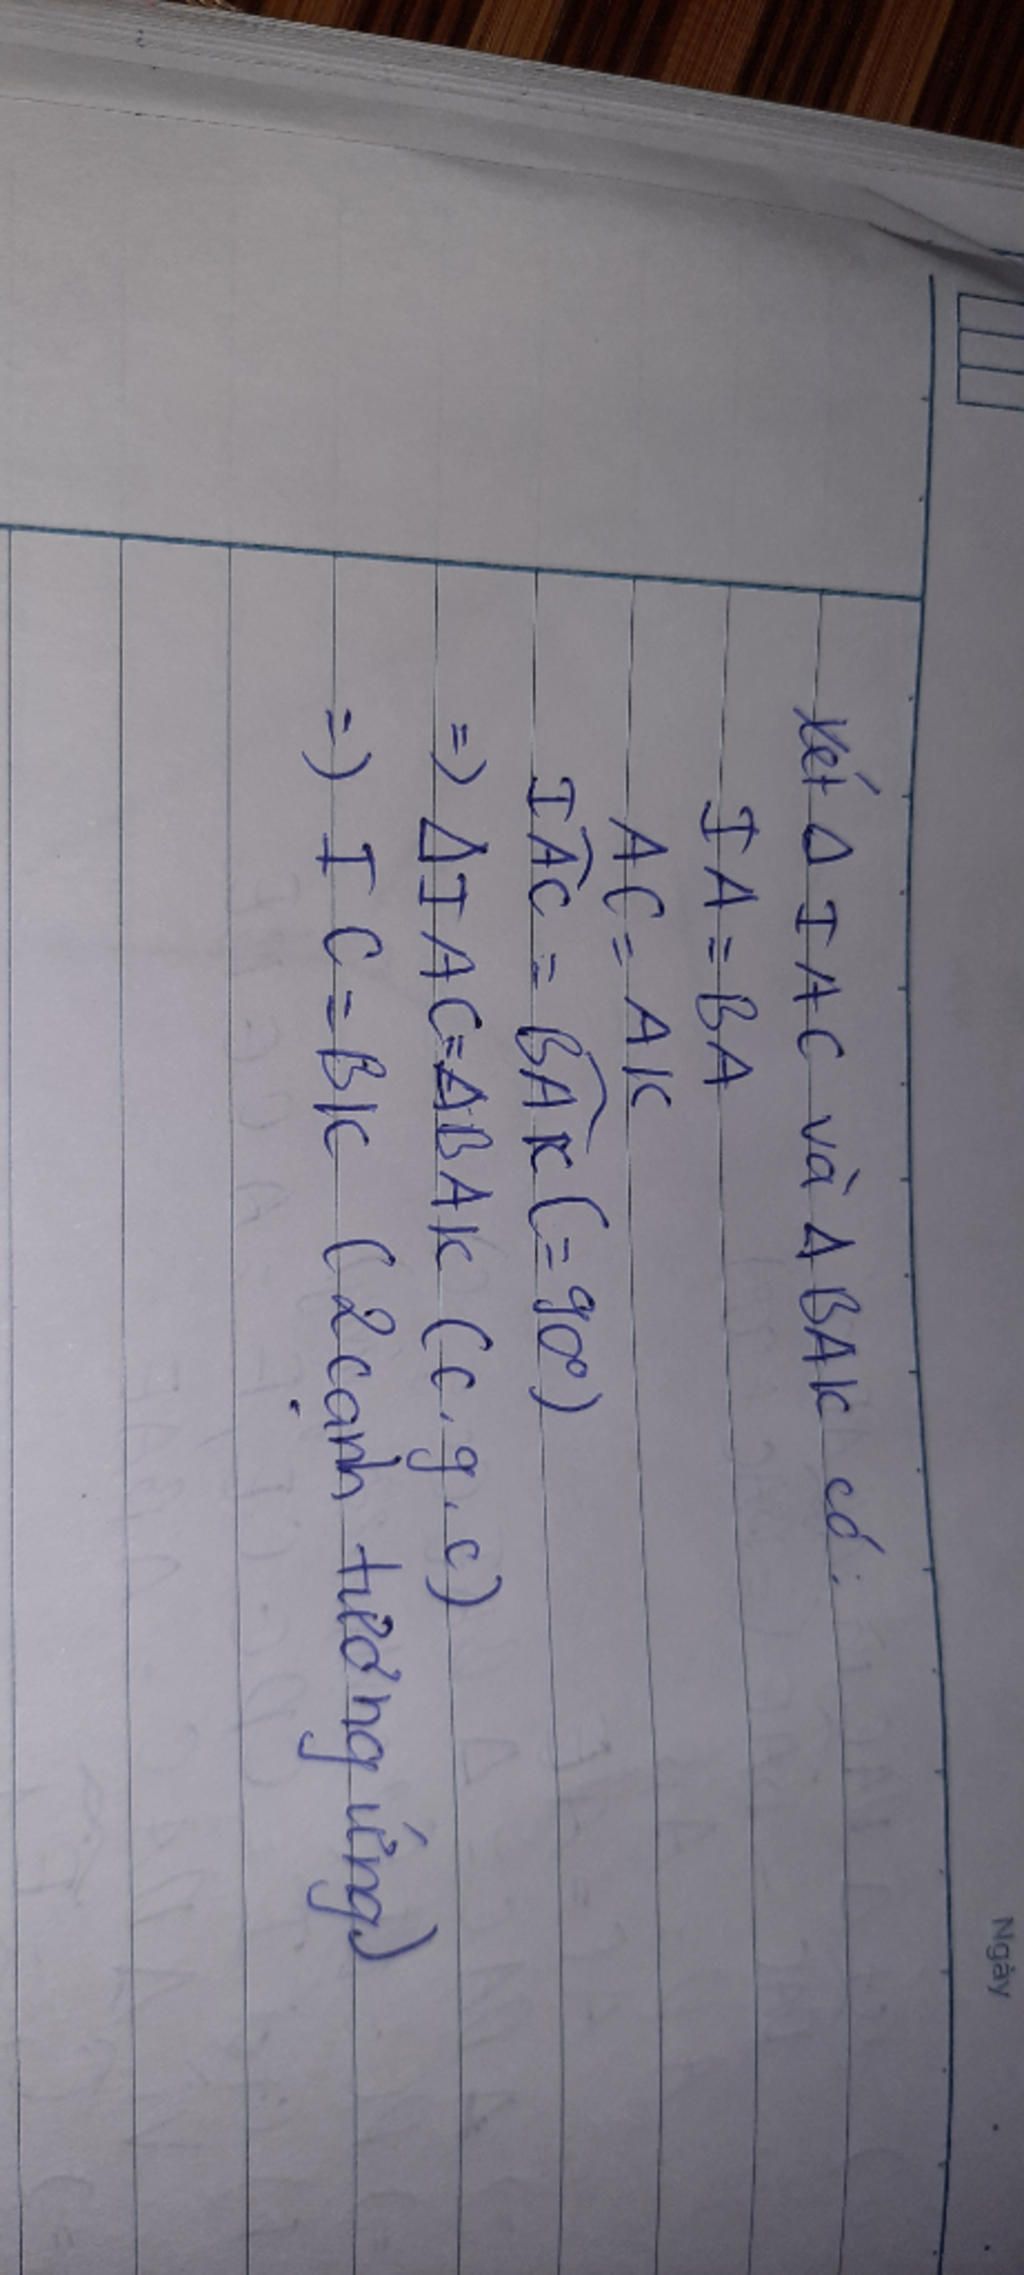 Ngày
Xét Δ IAC và Δ BAK có:
IA = BA
AC = AK
IAC = BAK (= 90°)
=) ΔIAC = ΔBAK (c.g.c)
=) IC = BK (2 cạnh tương ứng)